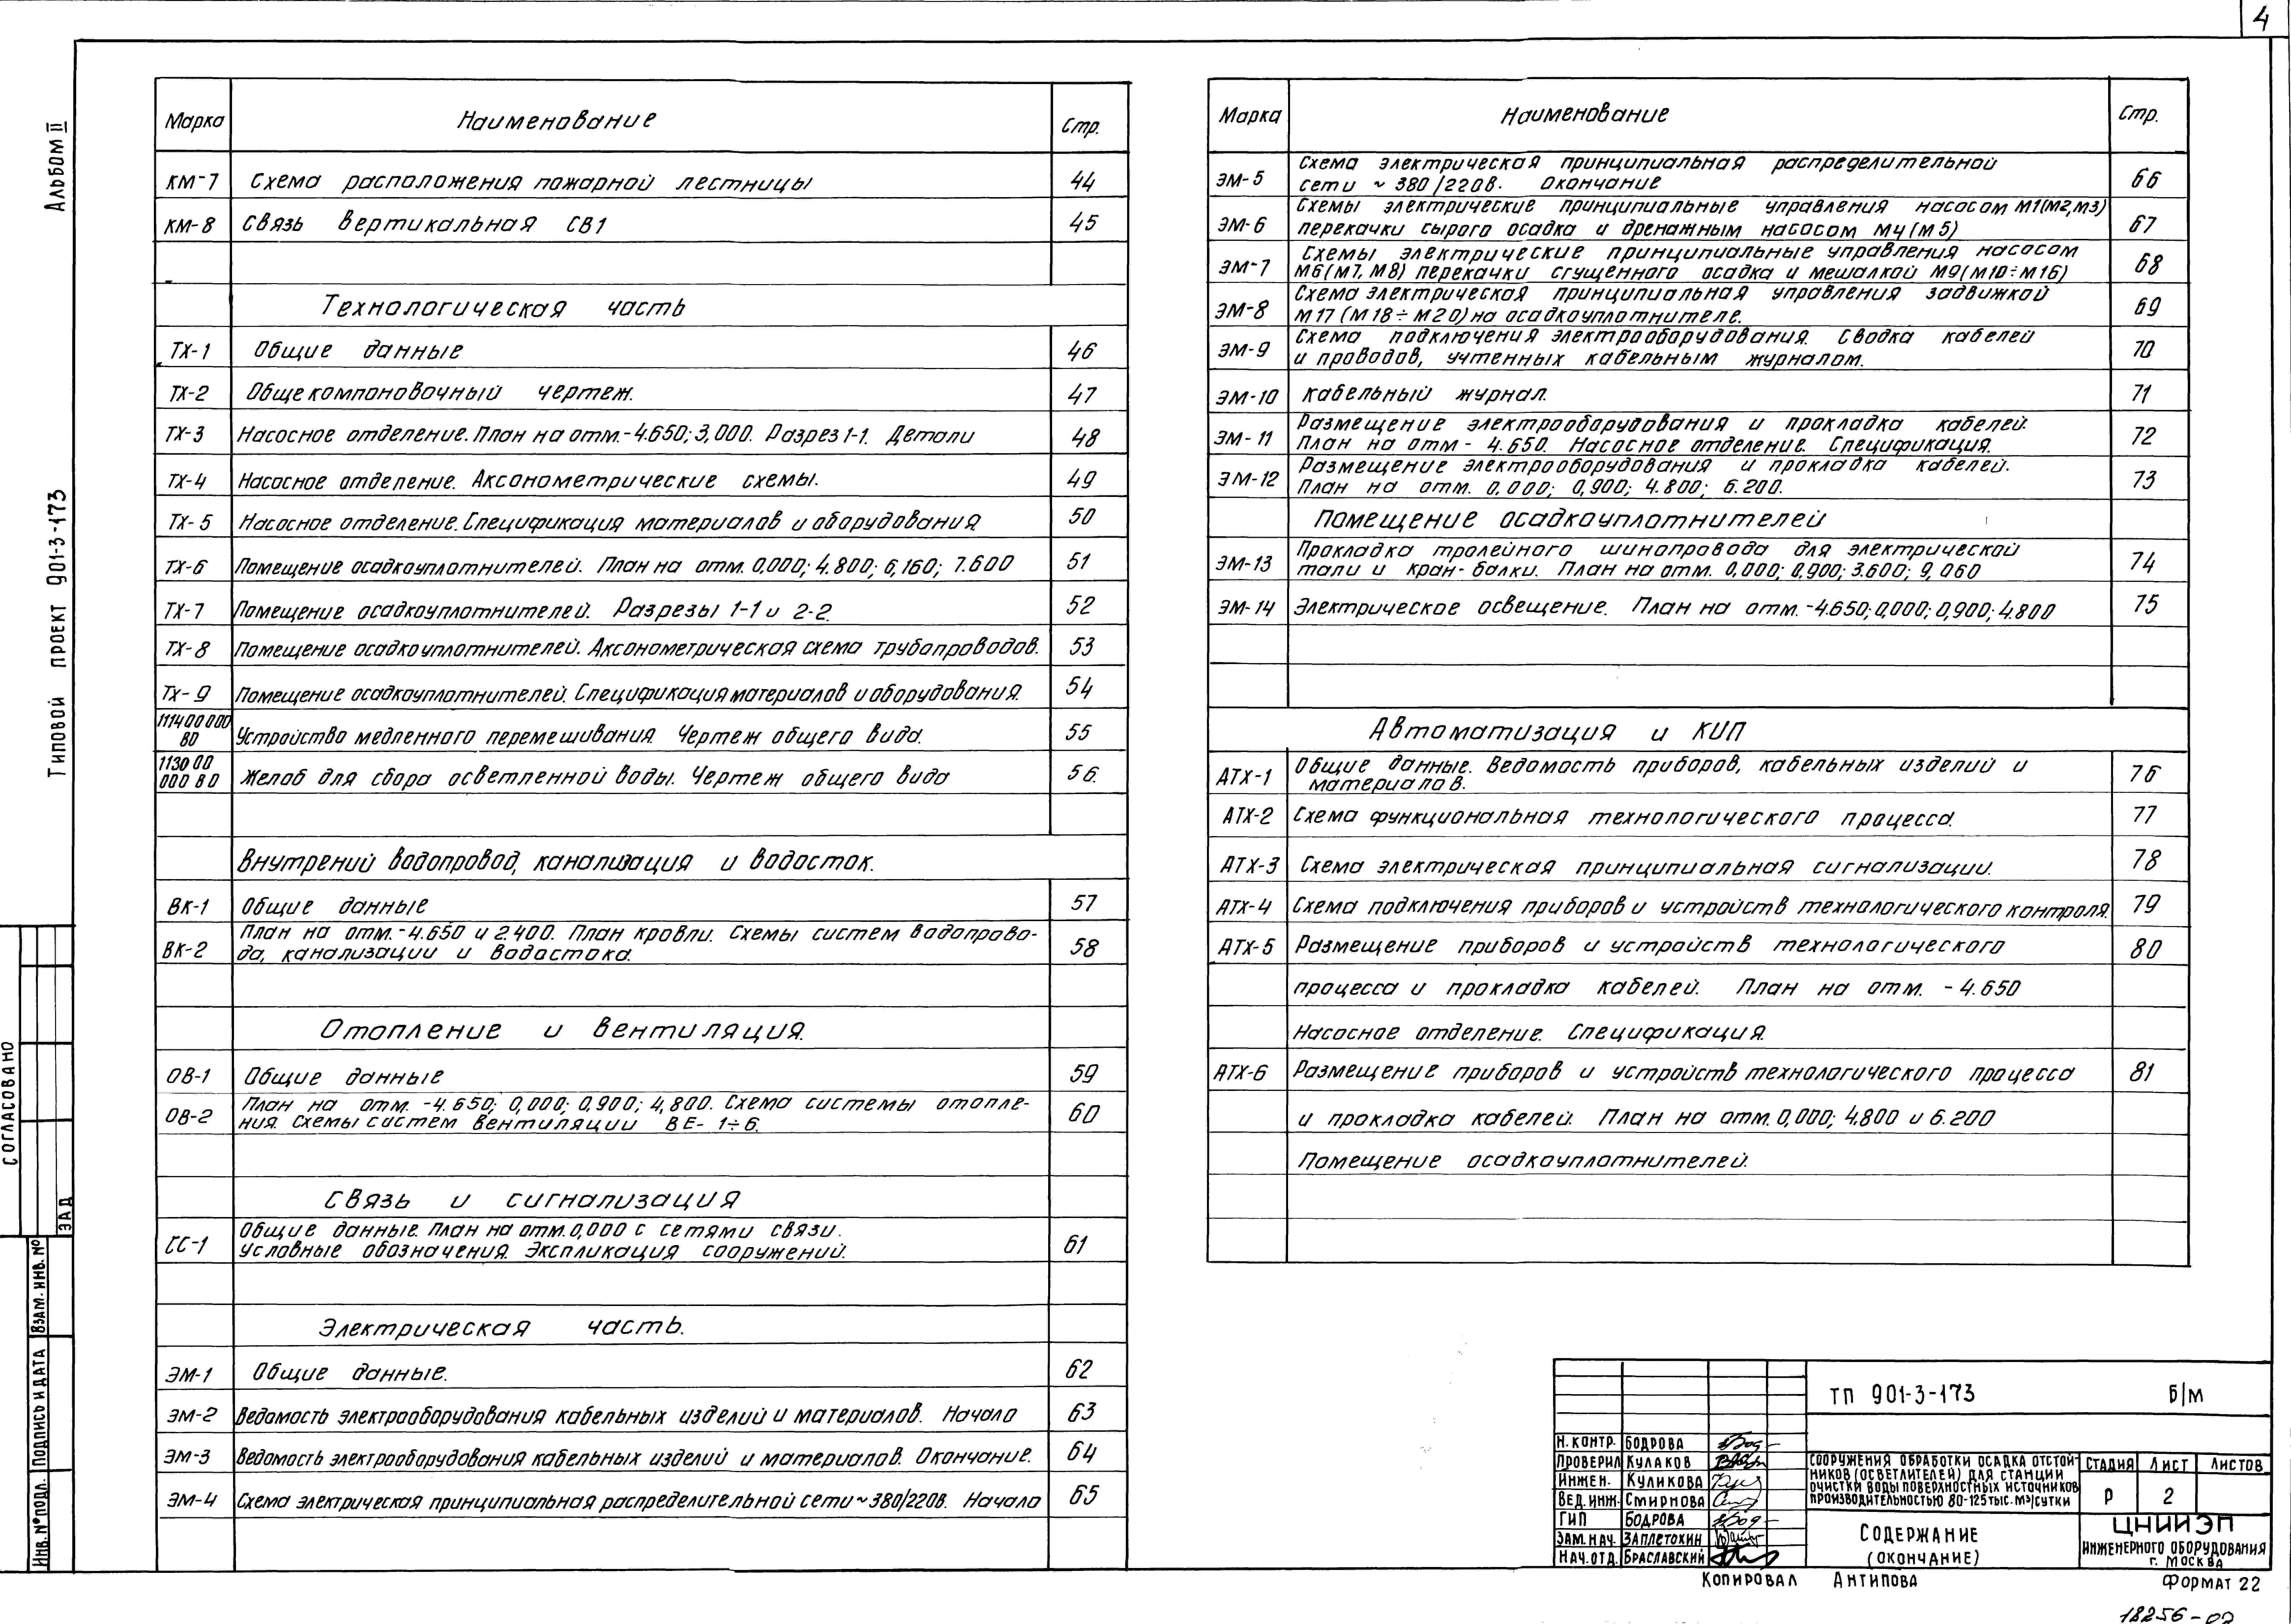 4
Альбом II
Типовой проект 901-3-173
Согласовано
ЗАД
Взам. инв. №
Подпись и дата
Инв. № подл.
Марка Наименование Стр.
КМ-7 Схема расположения пожарной лестницы 44
КМ-8 Связь вертикальная СВ1 45
Технологическая часть
ТХ-1 Общие данные 46
ТХ-2 Общекомпоновочный чертеж. 47
ТХ-3 Насосное отделение. План на отм.-4.650; 3,000. Разрез 1-1. Детали 48
ТХ-4 Насосное отделение. Аксонометрические схемы. 49
ТХ-5 Насосное отделение. Спецификация материалов и оборудования 50
ТХ-6 Помещение осадкоуплотнителей. План на отм. 0,000; 4.800; 6,160; 7.600 51
ТХ-7 Помещение осадкоуплотнителей. Разрезы 1-1 и 2-2. 52
ТХ-8 Помещение осадкоуплотнителей. Аксонометрическая схема трубопроводов. 53
ТХ-9 Помещение осадкоуплотнителей. Спецификация материалов и оборудования. 54
111400000
ВО Устройство медленного перемешивания. Чертеж общего вида. 55
113000
000 ВО Желоб для сбора осветленной воды. Чертеж общего вида 56.
Внутрений водопровод, канализация и водосток.
ВК-1 Общие данные 57
План на отм.-4.650 и 2.400. План кровли. Схемы систем водопрово-
ВК-2 да, канализации и водостока. 58
Отопление и вентиляция.
ОВ-1 Общие данные 59
План на отм. -4.650; 0,000; 0,900; 4,800. Схема системы отопле-
ОВ-2 ния. Схемы систем вентиляции ВЕ- 1÷6. 60
Связь и сигнализация
Общие данные. План на отм. 0,000 с сетями связи.
СС-1 Условные обозначения. Экспликация сооружений. 61
Электрическая часть.
ЭМ-1 Общие данные. 62
ЭМ-2 Ведомость электрооборудования кабельных изделий и материалов. Начало 63
ЭМ-3 Ведомость электрооборудования кабельных изделий и материалов. Окончание. 64
ЭМ-4 Схема электрическая принципиальная распределительной сети ~380/220в. Начало 65
Марка Наименование Стр.
Схема электрическая принципиальная распределительной
ЭМ-5 сети ~ 380/220в. Окончание 66
Схемы электрические принципиальные управления насосом М1(М2,М3)
ЭМ-6 перекачки сырого осадка и дренажным насосом М4(М5) 67
Схемы электрические принципиальные управления насосом
ЭМ-7 М6(М7, М8) перекачки сгущенного осадка и мешалкой М9(М10÷М16) 68
Схема электрическая принципиальная управления задвижкой
ЭМ-8 М17 (М18÷М20) на осадкоуплотнителе. 69
Схема подключения электрооборудования. Сводка кабелей
ЭМ-9 и проводов, учтенных кабельным журналом. 70
ЭМ-10 Кабельный журнал. 71
Размещение электрооборудования и прокладка кабелей.
ЭМ-11 План на отм - 4.650. Насосное отделение. Спецификация. 72
Размещение электрооборудования и прокладка кабелей.
ЭМ-12 План на отм. 0,000; 0,900; 4.800; 6.200. 73
Помещение осадкоуплотнителей
Прокладка тролейного шинопровода для электрической
ЭМ-13 тали и кран-балки. План на отм. 0,000; 0,900; 3.600; 9,060 74
ЭМ-14 Электрическое освещение. План на отм. -4.650; 0,000; 0,900; 4.800 75
Автоматизация и КИП
Общие данные. Ведомость приборов, кабельных изделий и
АТХ-1 материалов. 76
АТХ-2 Схема функциональная технологического процесса. 77
АТХ-3 Схема электрическая принципиальная сигнализации. 78
АТХ-4 Схема подключения приборов и устройств технологического контроля. 79
АТХ-5 Размещение приборов и устройств технологического 80
процесса и прокладка кабелей. План на отм. - 4.650
Насосное отделение. Спецификация.
АТХ-6 Размещение приборов и устройств технологического процесса 81
и прокладка кабелей. План на отм. 0,000; 4.800 и 6.200
Помещение осадкоуплотнителей.
ТП 901-3-173 б/м
Н.контр. Бодрова
Проверил Кулаков
Инжен. Куликова
Вед.инж. Смирнова
ГИП Бодрова
Зам.нач. Заплетохин
Нач.отд. Браславский
Сооружения обработки осадка отстой-
ников (осветлителей) для станции
очистки воды поверхностных источников
производительностью 80-125 тыс. м³/сутки
Стадия Лист Листов
Р 2
Содержание
(окончание)
ЦНИИЭП
инженерного оборудования
г. Москва
Копировал Антипова
Формат 22
18256-02